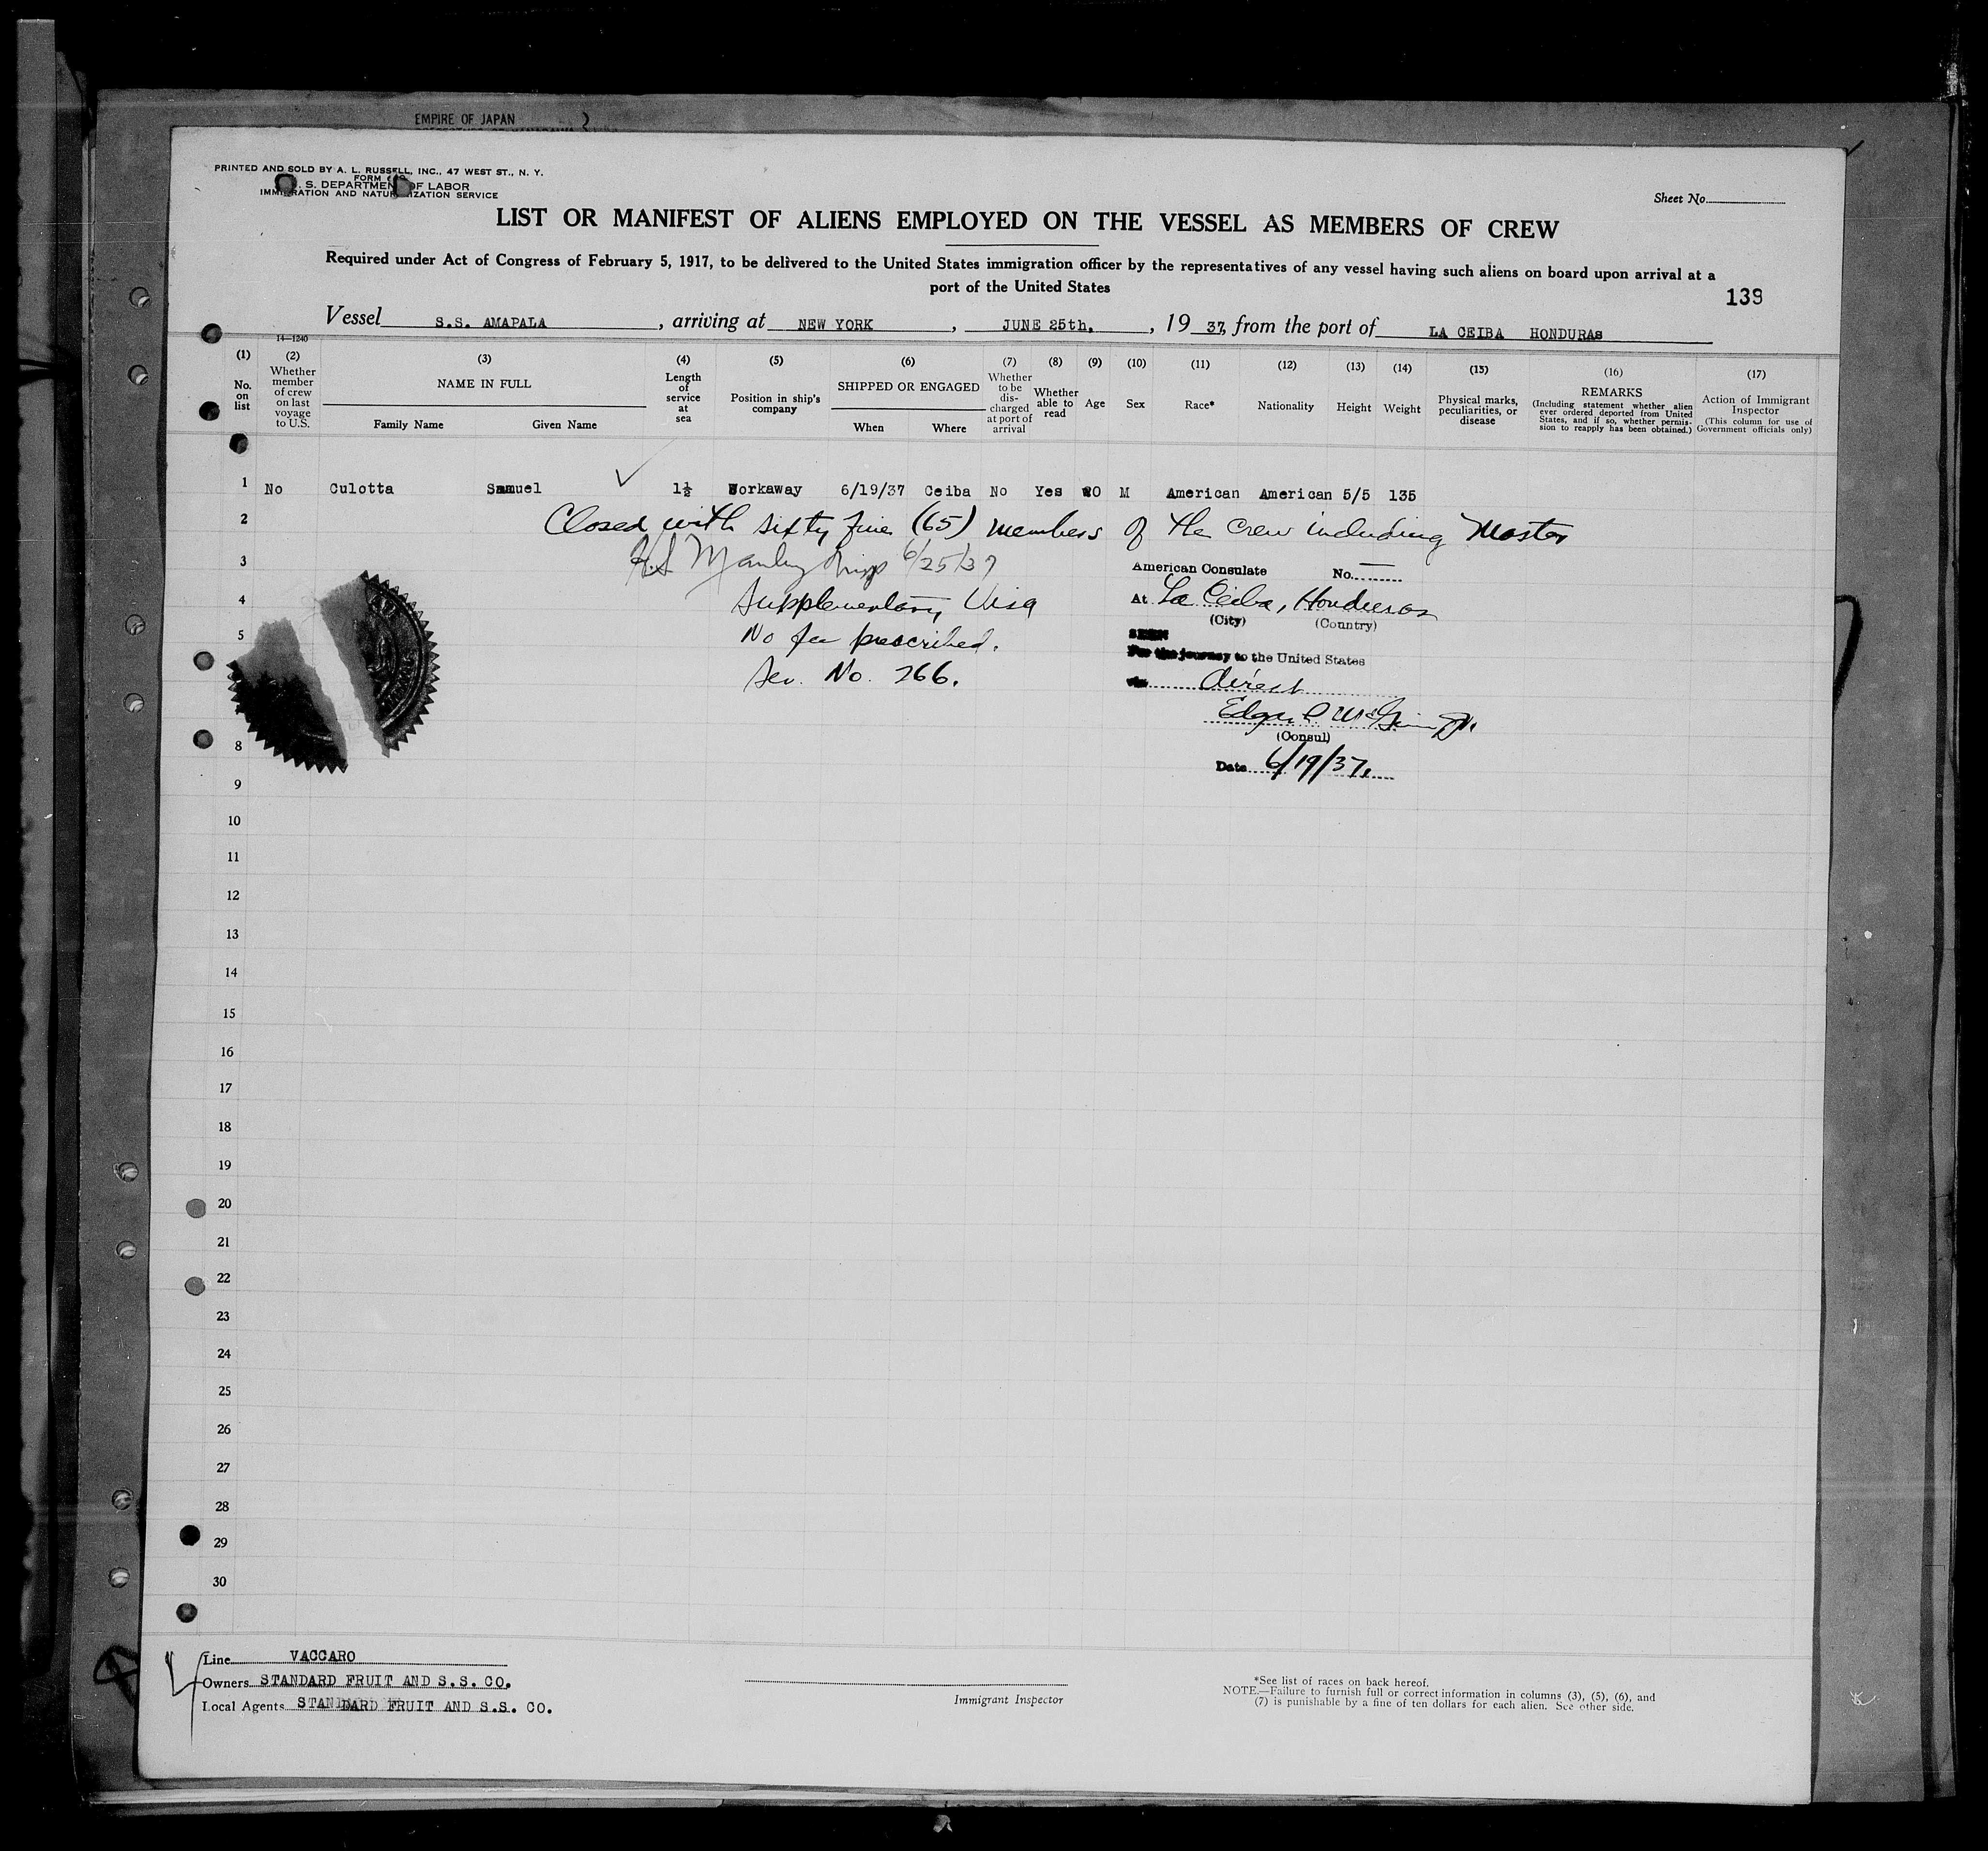 EMPIRE OF JAPAN
PRINTED AND SOLD BY A. L. RUSSELL, INC., 47 WEST ST., N. Y.
FORM
S. DEPARTMENT OF LABOR
IMMIGRATION AND NATURALIZATION SERVICE
Sheet No.
LIST OR MANIFEST OF ALIENS EMPLOYED ON THE VESSEL AS MEMBERS OF CREW
Required under Act of Congress of February 5, 1917, to be delivered to the United States immigration officer by the representatives of any vessel having such aliens on board upon arrival at a
port of the United States
139
Vessel S.S. AMAPALA, arriving at NEW YORK, JUNE 25th, 19 37, from the port of LA CEIBA HONDURAS
14—1240
(1) No. on list
(2) Whether member of crew on last voyage to U.S.
(3) NAME IN FULL
Family Name Given Name
(4) Length of service at sea
(5) Position in ship's company
(6) SHIPPED OR ENGAGED
When Where
(7) Whether to be discharged at port of arrival
(8) Whether able to read
(9) Age
(10) Sex
(11) Race*
(12) Nationality
(13) Height
(14) Weight
(15) Physical marks, peculiarities, or disease
(16) REMARKS
(Including statement whether alien ever ordered deported from United States, and if so, whether permission to reapply has been obtained.)
(17) Action of Immigrant Inspector
(This column for use of Government officials only)
1 No Culotta Samuel 1½ Workaway 6/19/37 Ceiba No Yes 20 M American American 5/5 135
2 Closed with sixty five (65) members of the crew including Master
3 Manley 6/25/37
American Consulate No.
4 Supplementary Visa
At La Ceiba, Honduras
(City) (Country)
5 No fee prescribed.
SEEN
For the journey to the United States
Ser. No. 266.
via direct
(Consul)
8
Date 6/19/37.
9
10
11
12
13
14
15
16
17
18
19
20
21
22
23
24
25
26
27
28
29
30
Line VACCARO
Owners STANDARD FRUIT AND S.S. CO.
Local Agents STANDARD FRUIT AND S.S. CO.
Immigrant Inspector
*See list of races on back hereof.
NOTE.—Failure to furnish full or correct information in columns (3), (5), (6), and
(7) is punishable by a fine of ten dollars for each alien. See other side.